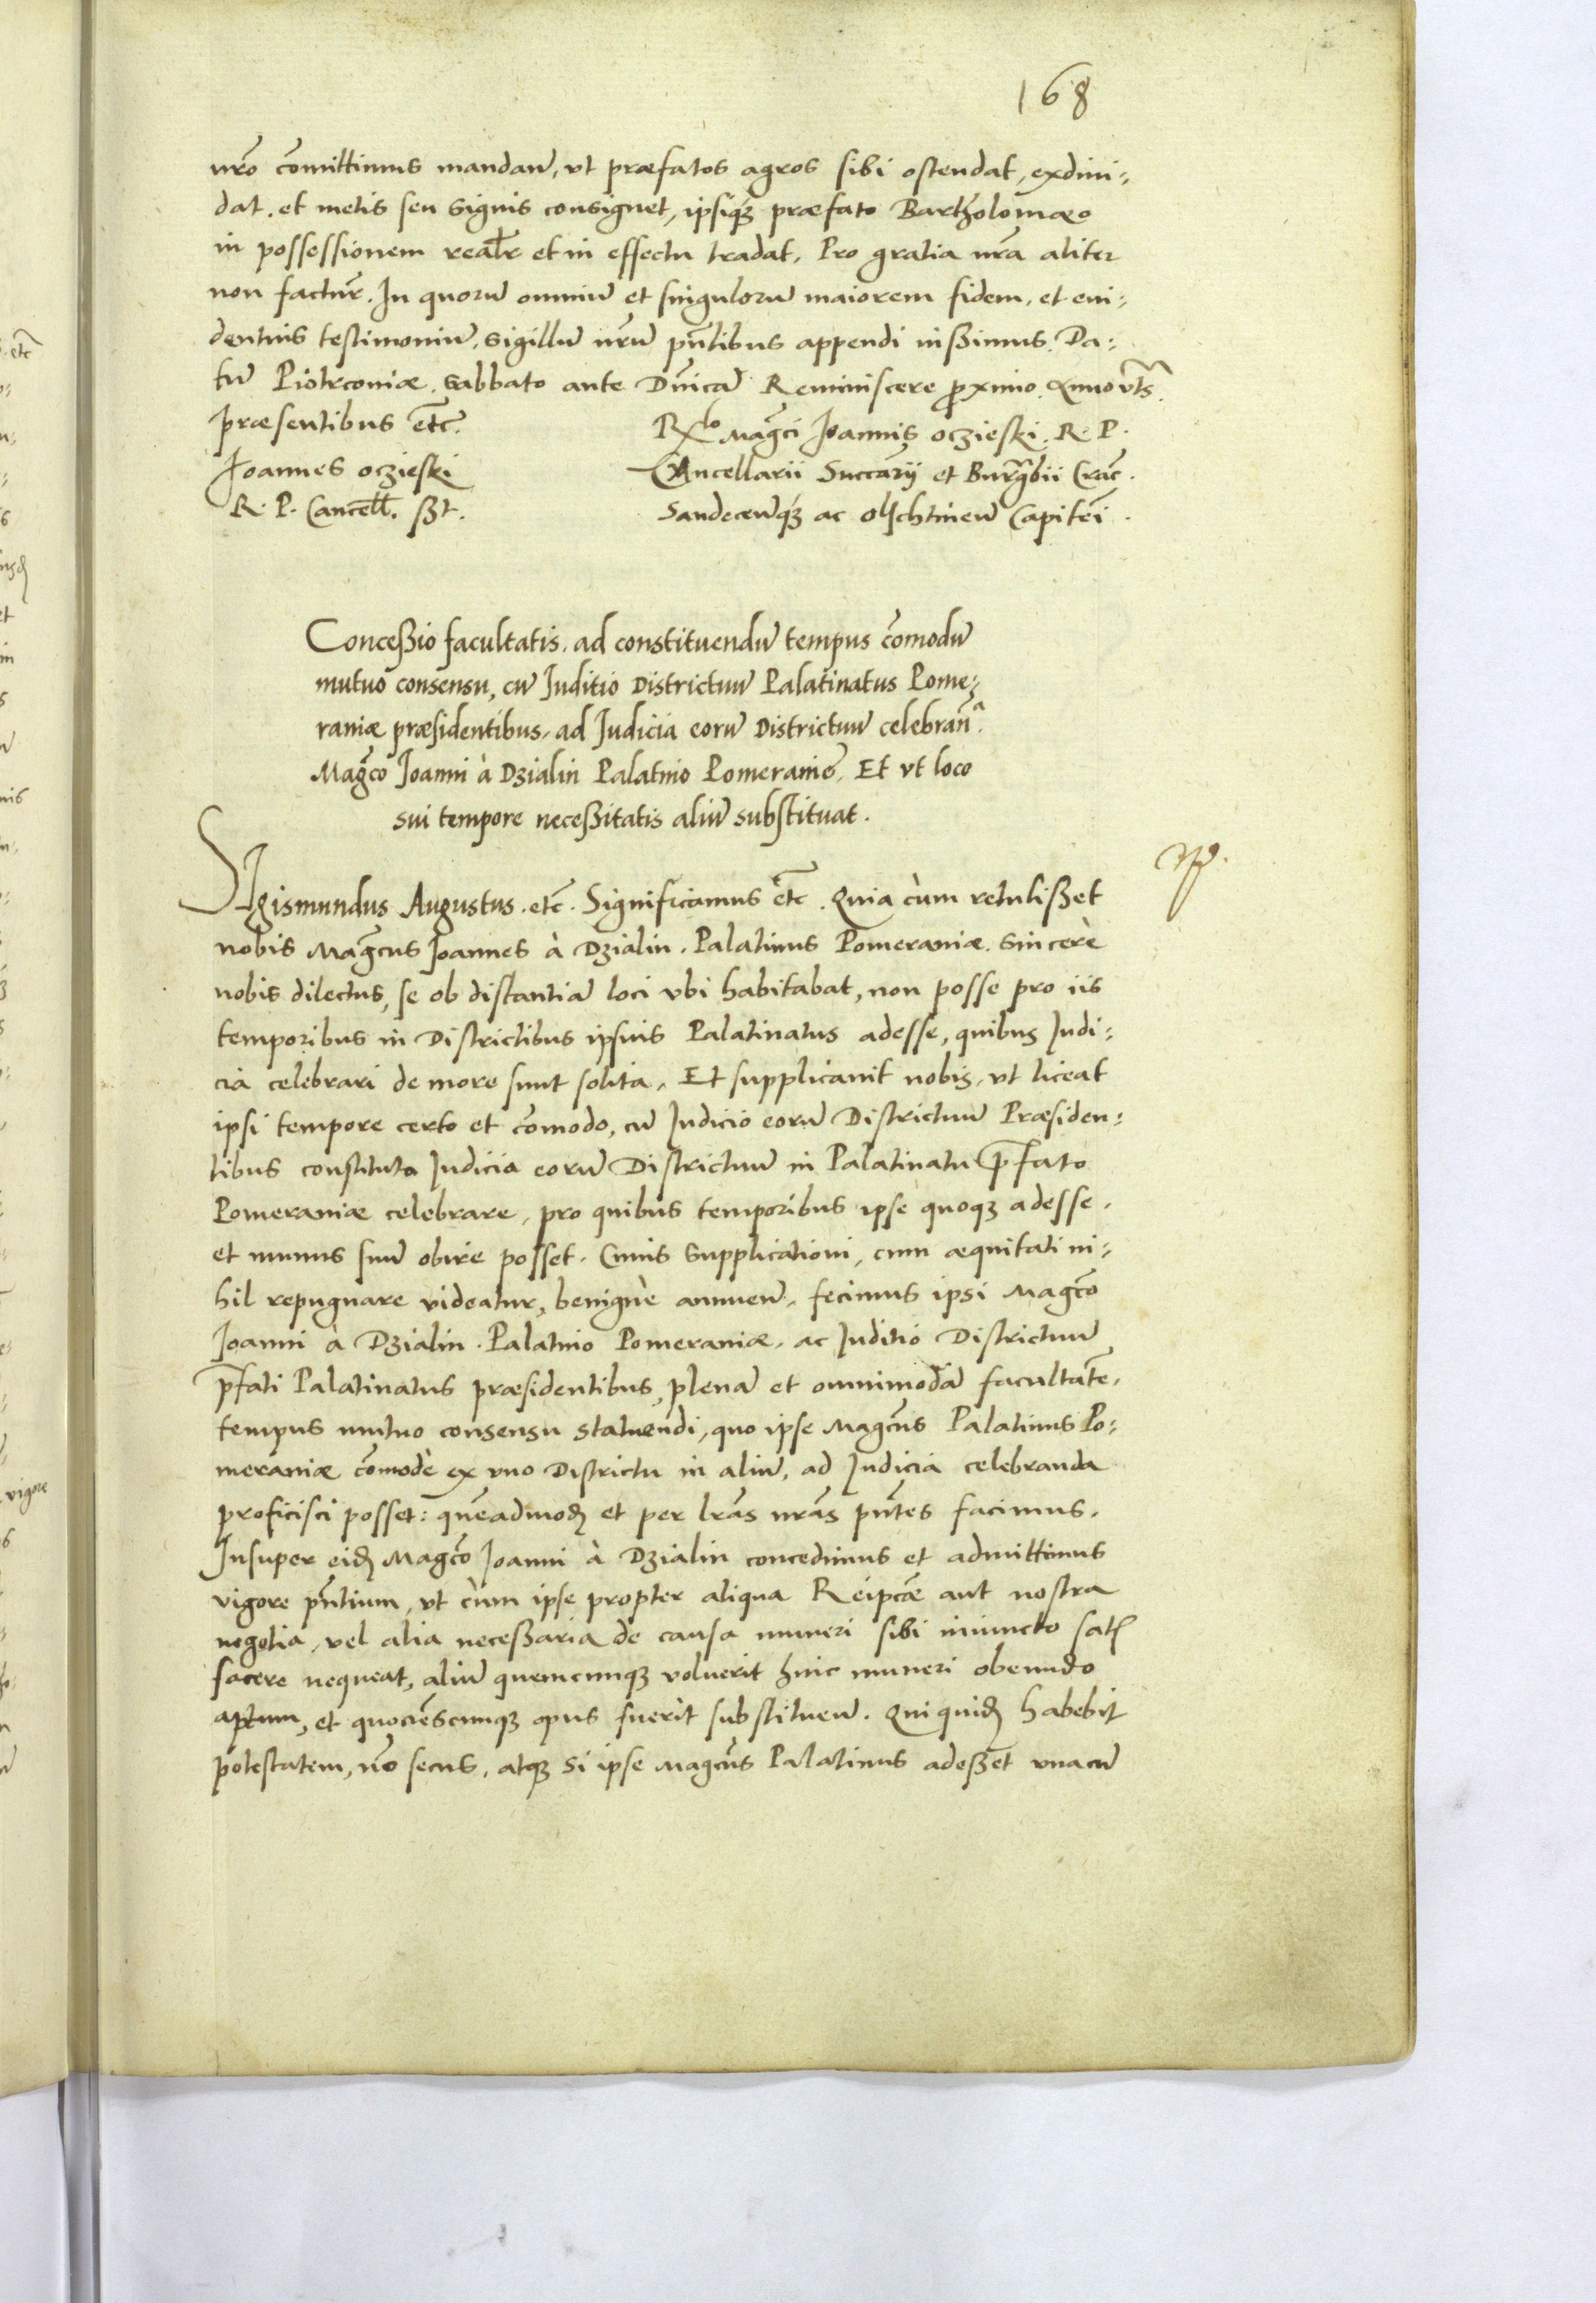 168
nr̃o com̃ittimus mandan̄, vt præfatos agros sibi ostendat, exdiui-
dat. et metis seu signis consignet, ipsiq́ꝫ præfato Bartholomæo
in possessionem realr̃ et in effectu tradat, Pro gratia nr̃a aliter
non factur̃. In quorū omniū et singulorū maiorem fidem, et eui-
dentius testimoniū, sigillū nr̃um pñtibus appendi iußimus. Da-
tū Piotrconiæ. Sabbato ante Dñicā Reminiscere proximo Anno vts̃.
Præsentibus etc̃.
Joannes oczieski
R. P. Cancell̃. sßt.
Rlo Magc̃i Joannis oczieski. R. P.
Cancellarii Succarij et Burgr̃bii Crac̃.
Sandecen̄q́ꝫ ac olschtinen̄ Capitei.
Conceßio facultatis. ad constituendū tempus com̃odū
mutuo consensu, cū Juditio Districtuū Palatinatus Pome-
raniæ præsidentibus, ad Judicia eorū Districtuū celebranª.
Magc̃o Joanni à Dzialin Palatino Pomeranię, Et vt loco
sui tempore neceßitatis aliū substituat.
SIgismundus Augustus. etc̃. Significamus etc̃. Quia cùm retulißet
nobis Magc̃us Joannes à Dzialin. Palatinus Pomeraniæ. sincerè
nobis dilectus, se ob distantiā loci vbi habitabat, non posse pro iis
temporibus in Districtibus ipsius Palatinatus adesse, quibus Judi-
cia celebrari de more sunt solita. Et supplicauit nobis, vt liceat
ipsi tempore certo et com̃odo, cū Judicio eorū Districtuū Præsiden-
tibus constituto Judicia eorū Districtuū in Palatinatu p̄fato
Pomeraniæ celebrare, pro quibus temporibus ipse quoqꝫ adesse.
et munus suū obire posset. Cuius supplicationi, cum æquitati ni-
hil repugnare videatur, benignè annuen̄, fecimus ipsi Magc̃o
Joanni à Dzialin. Palatino Pomeraniæ. ac Juditio Districtuū
p̄fati Palatinatus præsidentibus, plenā et omnimodā facultatē.
tempus mutuo consensu statuendi, quo ipse Magc̃us Palatinus Po-
meraniæ com̃odè ex vno Districtu in aliū, ad Judicia celebranda
proficisci posset: quēadmodꝫ et per lr̃as nr̃as pñtes facimus.
Insuper eidꝫ Magc̃o Joanni à Dzialin concedimus et admittimus
vigore pñtium, vt cùm ipse propter aliqua Reipcæ̃ aut nostra
negotia, vel alia neceßaria de causa muneri sibi iniuncto satꝫ
facere nequeat, aliū quemcunqꝫ voluerit huic muneri obeundo
aptum, et quociēscunqꝫ opus fuerit substituen̄. Qui quidꝫ habebit
potestatem, nõ secus, atqꝫ si ipse Magc̃us Palatinus adeßet vnacū